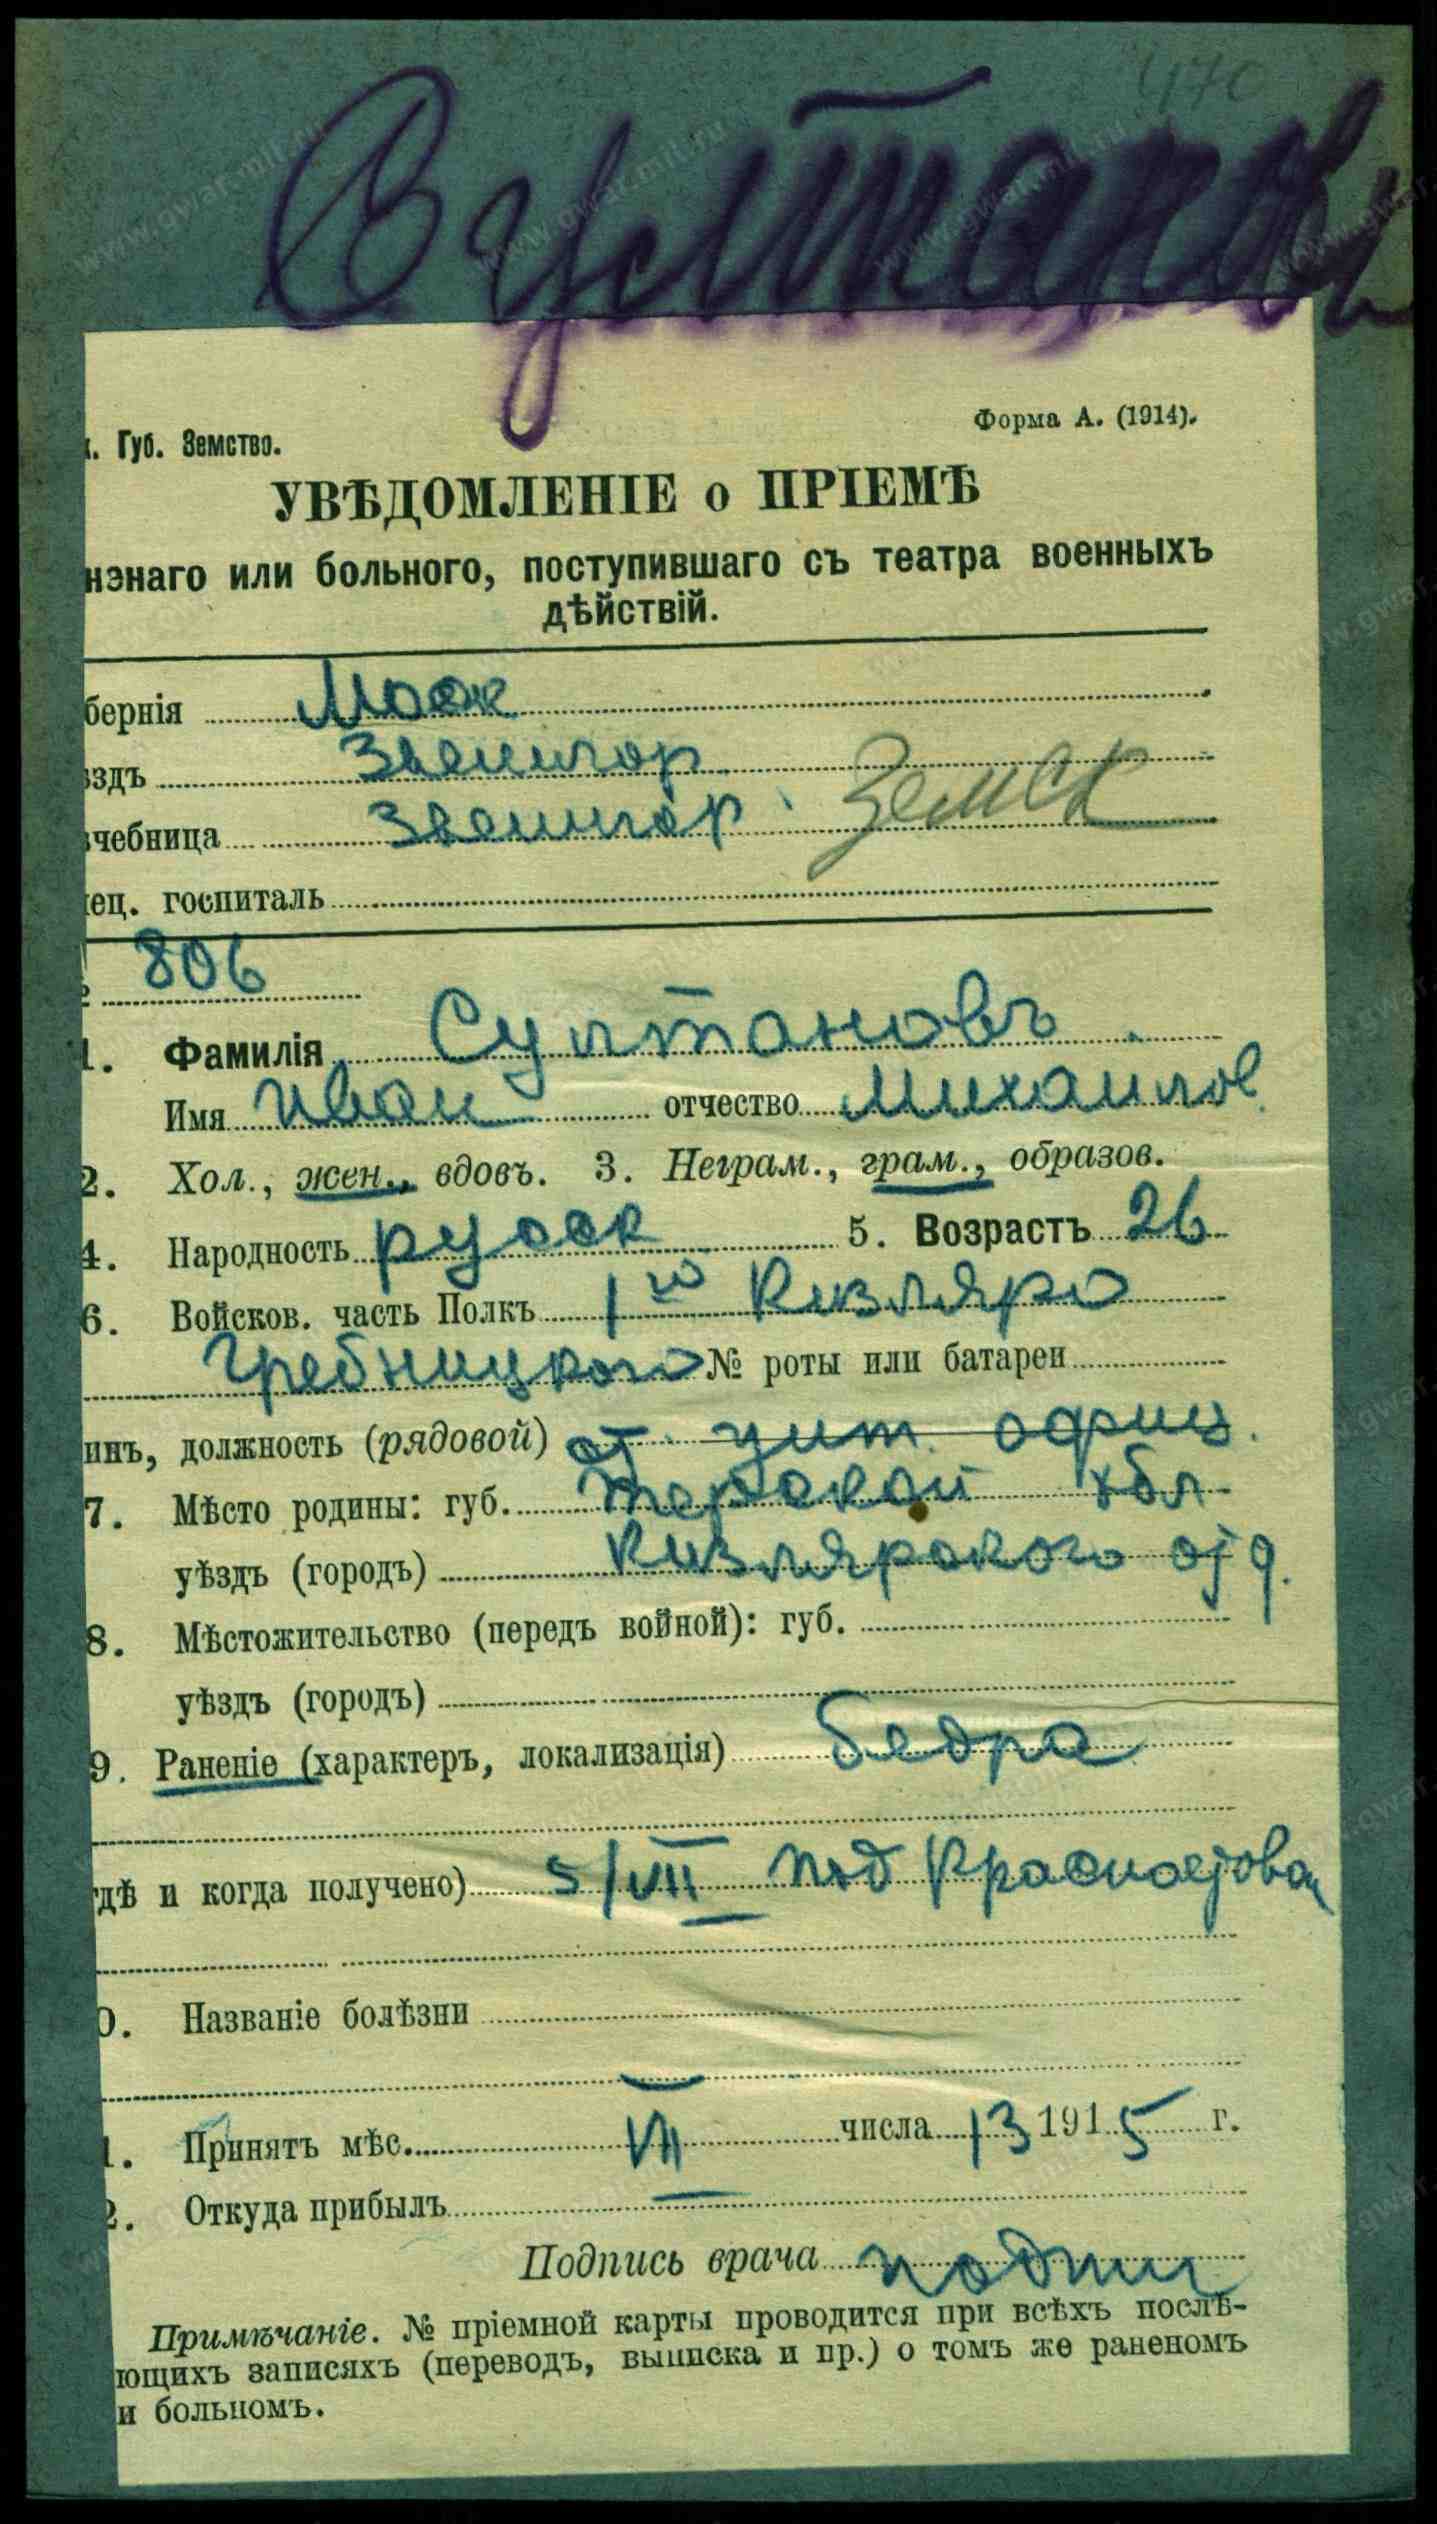 470
Султановъ
к. Губ. Земство.
Форма А. (1914).
УВѢДОМЛЕНІЕ о ПРІЕМѢ
нэнаго или больного, поступившаго съ театра военныхъ
дѣйствій.
бернія Моск
ѣздъ Звенигор
чебница Звенигор. Земск
пец. госпиталь
806
1. Фамилія Султановъ.
Имя Иван отчество Михаилов.
2. Хол., жен., вдовъ. 3. Неграм., грам., образов.
4. Народность русск 5. Возрастъ 26
6. Войсков. часть Полкъ 1го Кизляро
Гребницкого № роты или батареи
инъ, должность (рядовой) ст. унт. офиц.
7. Мѣсто родины: губ. Терской обл
уѣздъ (городъ) Кизлярского отд.
8. Мѣстожительство (передъ войной): губ.
уѣздъ (городъ)
9. Раненіе (характеръ, локализація) бедра
гдѣ и когда получено) 5/VII под Красноставом
0. Названіе болѣзни
1. Принятъ мѣс. VII числа 13 1915 г.
2. Откуда прибылъ
Подпись врача подпи
Примѣчаніе. № пріемной карты проводится при всѣхъ послѣ-
ющихъ записяхъ (переводъ, выписка и пр.) о томъ же раненомъ
и больномъ.
www.gwar.mil.ru